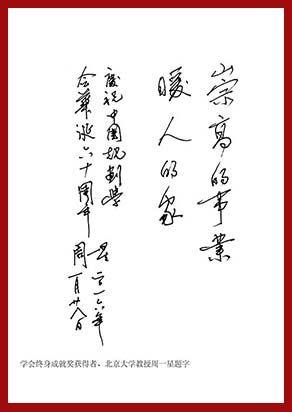 崇高的事业
暖人的家
庆祝中国规划学
会华诞六十周年
周一星 二〇一六年
一月廿八日
学会终身成就奖获得者、北京大学教授周一星题字